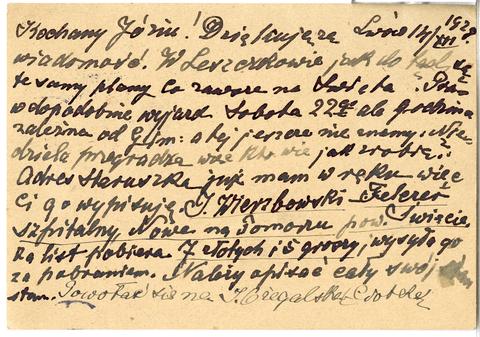 Kochany Józiu! Dziękuję za Lwów 14/XII 1928.
wiadomość. W Leszczkowie jak do tąd są
te same plany co zawsze na Święta. Pra-
wdopodobnie wyjazd Sobota 22go ale godzina
zależna od a tej jeszcze nie znamy. Nie-
dziela przegradza więc kto wie jak zrobię.
Adres Staruszka już mam w ręku więc
Ci go wypisuję J. Wierzbowski Felczer
szpitalny, Nowe na Pomorzu pow. Świecie
za list pobiera 7 złotych i groszy, wysyła go
za pobraniem. Należy opisać cały swój
stan. Powołać się na J.